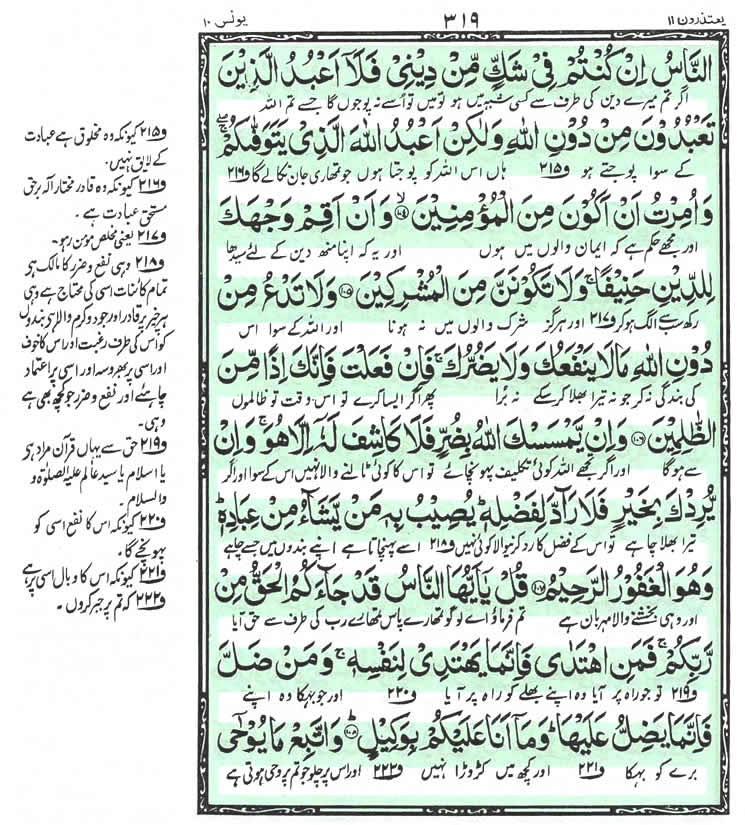 یعتذرون ۱۱
۳۱۹
یونس ۱۰
النَّاسُ اِنْ كُنْتُمْ فِیْ شَكٍّ مِّنْ دِیْنِیْ فَلَاۤ اَعْبُدُ الَّذِیْنَ
اگر تم میرے دین کی طرف سے کسی شبہ میں ہو تو میں تو اُسے نہ پوجوں گا جسے تم اللہ
تَعْبُدُوْنَ مِنْ دُوْنِ اللّٰهِ وَلٰكِنْ اَعْبُدُ اللّٰهَ الَّذِیْ یَتَوَفّٰىكُمْ ۚۖ
کے سوا پوجتے ہو و۲۱۵ ہاں اس اللہ کو پوجتا ہوں جو تمھاری جان نکالے گا و۲۱۶
وَاُمِرْتُ اَنْ اَكُوْنَ مِنَ الْمُؤْمِنِیْنَ ۙ﴿۱۰۴﴾ وَاَنْ اَقِمْ وَجْهَكَ
اور مجھے حکم ہے کہ ایمان والوں میں ہوں اور یہ کہ اپنا منھ دین کے لئے سیدھا
لِلدِّیْنِ حَنِیْفًا ۚ وَلَا تَكُوْنَنَّ مِنَ الْمُشْرِكِیْنَ ﴿۱۰۵﴾ وَلَا تَدْعُ مِنْ
رکھ سب سے الگ ہو کر و۲۱۷ اور ہرگز شرک والوں میں نہ ہونا اور اللہ کے سوا اس
دُوْنِ اللّٰهِ مَا لَا یَنْفَعُكَ وَلَا یَضُرُّكَ ۚ فَاِنْ فَعَلْتَ فَاِنَّكَ اِذًا مِّنَ
کی بندگی نہ کر جو نہ تیرا بھلا کر سکے نہ بُرا پھر اگر ایسا کرے تو اس وقت تو ظالموں
الظّٰلِمِیْنَ ﴿۱۰۶﴾ وَاِنْ یَّمْسَسْكَ اللّٰهُ بِضُرٍّ فَلَا كَاشِفَ لَهٗۤ اِلَّا هُوَ ۚ وَاِنْ
سے ہوگا اور اگر تجھے اللہ کوئی تکلیف پہونچائے تو اس کا کوئی ٹالنے والا نہیں اس کے سوا اور اگر
یُّرِدْكَ بِخَیْرٍ فَلَا رَآدَّ لِفَضْلِهٖ ؕ یُصِیْبُ بِهٖ مَنْ یَّشَآءُ مِنْ عِبَادِهٖ ؕ
تیرا بھلا چاہے تو اس کے فضل کا رد کرنیوالا کوئی نہیں و۲۱۸ اسے پہنچاتا ہے اپنے بندوں میں جسے چاہے
وَهُوَ الْغَفُوْرُ الرَّحِیْمُ ﴿۱۰۷﴾ قُلْ یٰۤاَیُّهَا النَّاسُ قَدْ جَآءَكُمُ الْحَقُّ مِنْ
اور وہی بخشنے والا مہربان ہے تم فرماؤ اے لوگو تمھارے پاس تمھارے رب کی طرف سے حق آیا
رَّبِّكُمْ ۚ فَمَنِ اهْتَدٰى فَاِنَّمَا یَهْتَدِیْ لِنَفْسِهٖ ۚ وَمَنْ ضَلَّ
و۲۱۹ تو جو راہ پر آیا وہ اپنے بھلے کو راہ پر آیا و۲۲۰ اور جو بہکا وہ اپنے
فَاِنَّمَا یَضِلُّ عَلَیْهَا ۚ وَمَاۤ اَنَا عَلَیْكُمْ بِوَكِیْلٍ ؕ﴿۱۰۸﴾ وَاتَّبِعْ مَا یُوْحٰۤى
برے کو بہکا و۲۲۱ اور کچھ میں کڑوڑا نہیں و۲۲۲ اور اس پر چلو جو تم پر وحی ہوتی ہے
و۲۱۵ کیونکہ وہ مخلوق ہے عبادت
کے لایق نہیں۔
و۲۱۶ کیونکہ وہ قادر مختار الٰہ برحق
مستحق عبادت ہے۔
و۲۱۷ یعنی مخلص مومن رہو۔
و۲۱۸ وہی نفع و ضرر کا مالک ہو
تمام کائنات اسی کی محتاج ہے وہی
ہر چیز پر قادر اور جود و کرم والا ہے بندوں
کو اس کی طرف رغبت اور اس کا خوف
اور اسی پر بھروسہ اور اسی پر اعتماد
چاہئے اور نفع و ضرر جو کچھ بھی ہے
وہی۔
و۲۱۹ حق سے یہاں قرآن مراد ہو
یا اسلام یا سید عالم علیہ الصلوٰۃ و
والسلام۔
و۲۲۰ کیونکہ اس کا نفع اسی کو
پہونچے گا۔
و۲۲۱ کیونکہ اس کا وبال اسی پر ہے
و۲۲۲ کہ تم پر جبر کروں۔